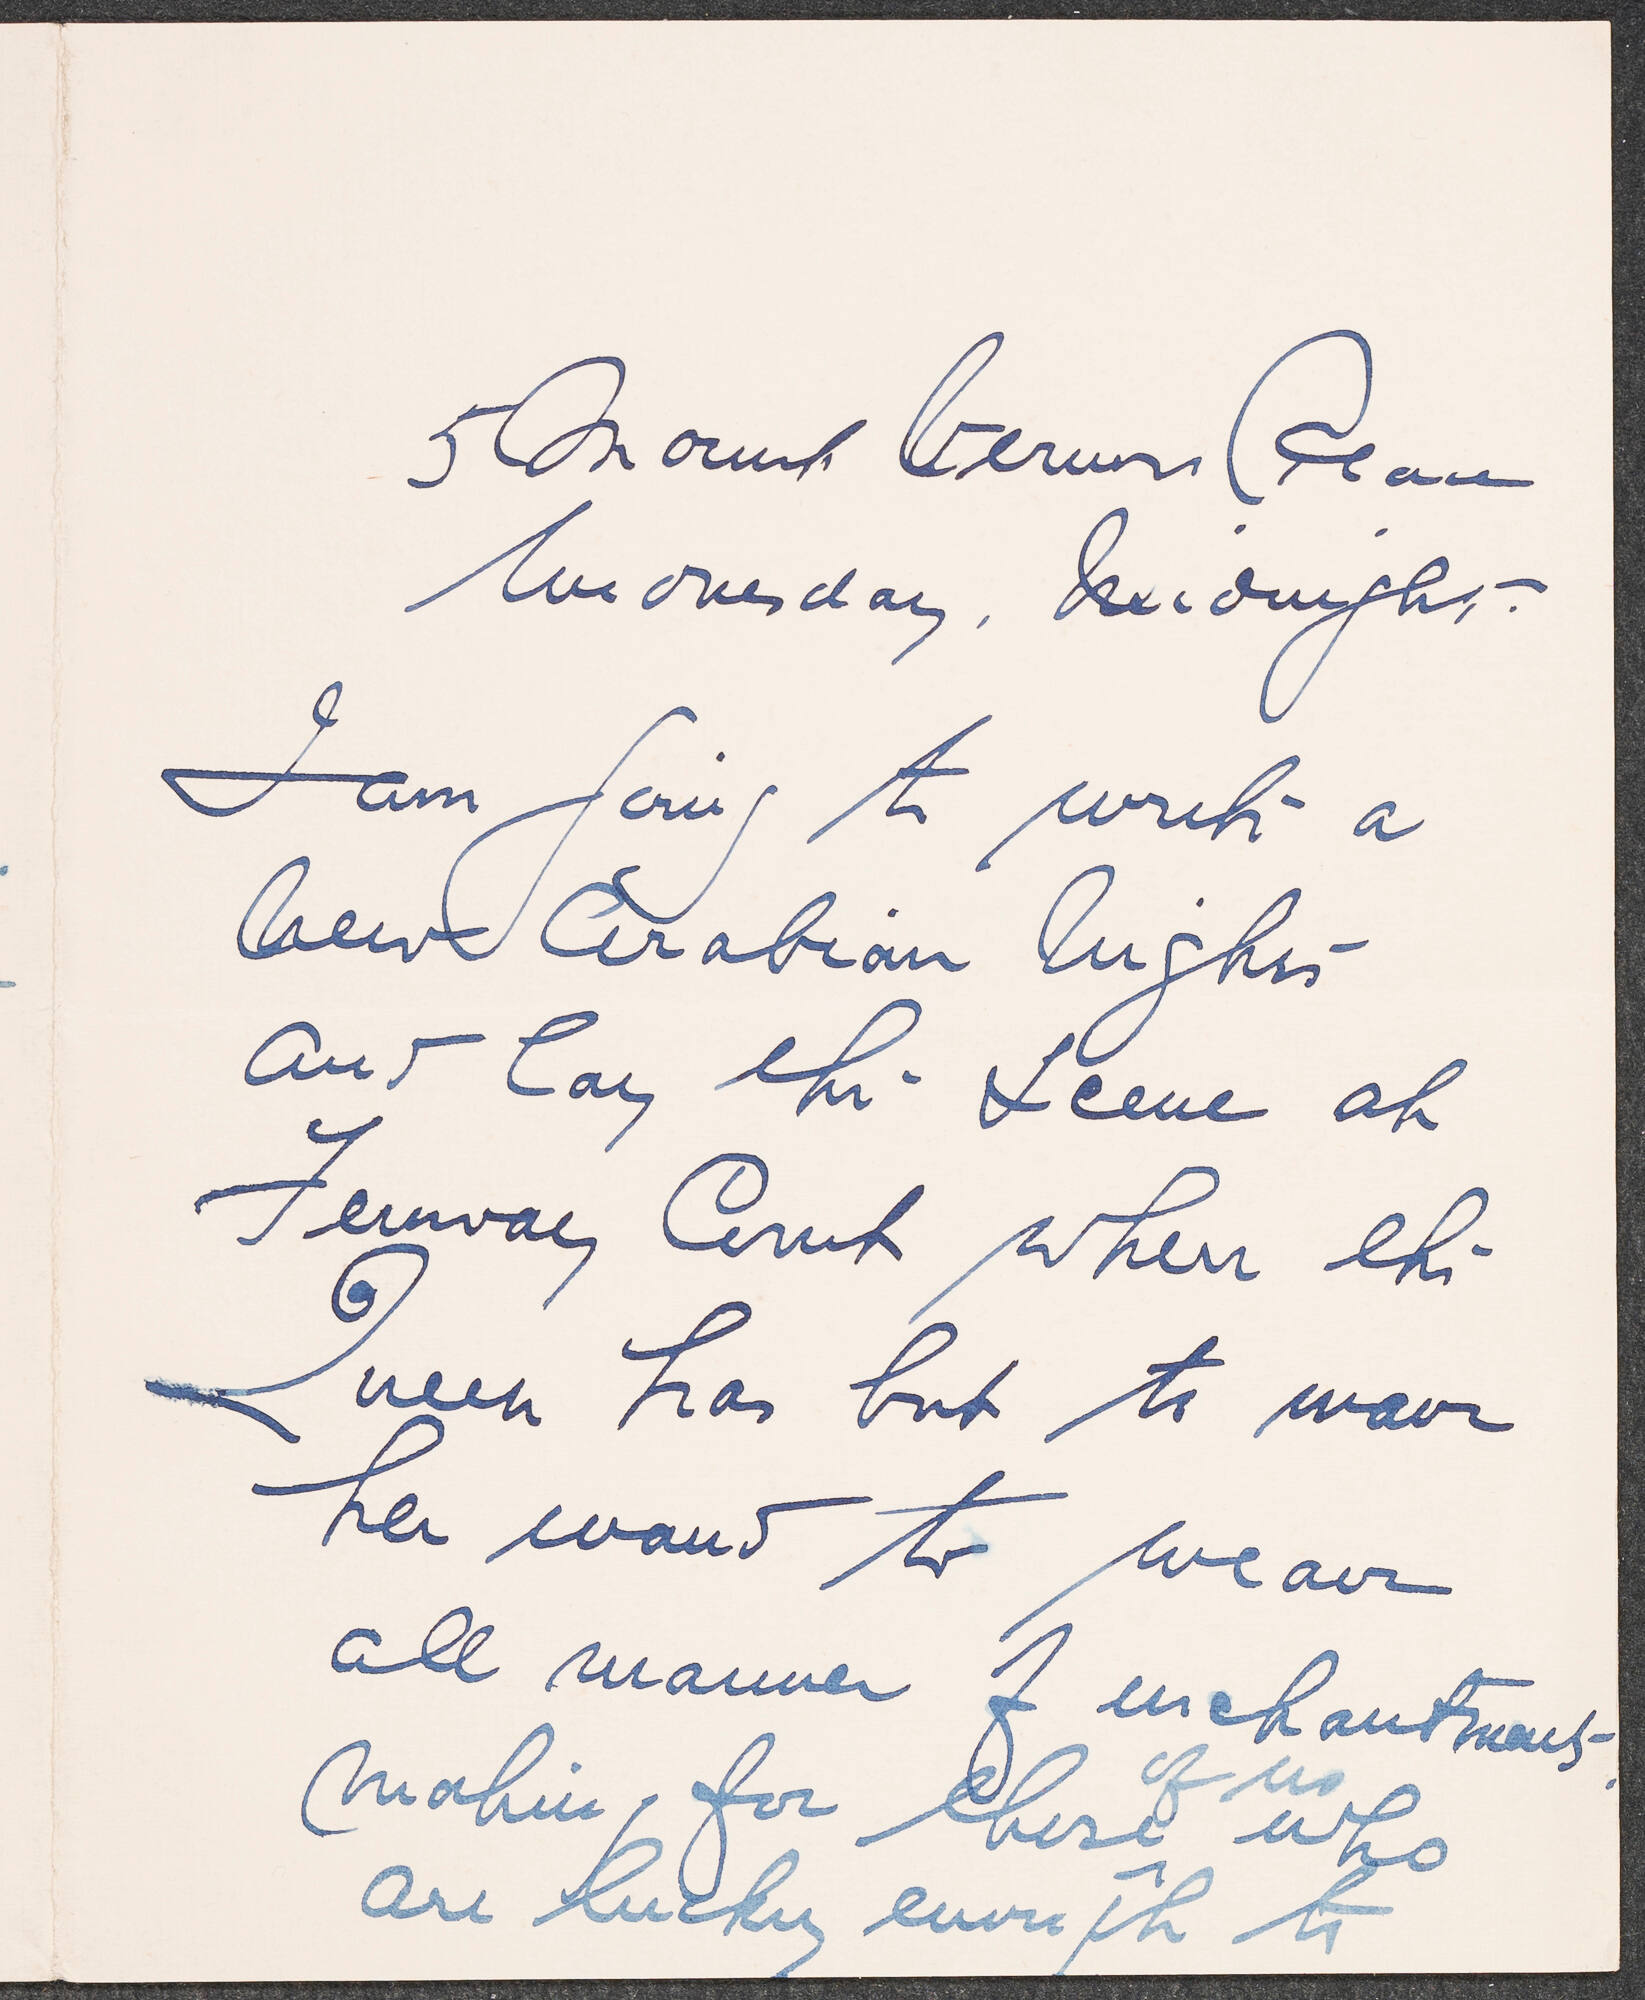 5 Mount Vernon Place
Wednesday, Midnight.
I am going to write a
New Arabian Nights
and lay the Scene at
Fenway Court where the
Queen has but to wave
her wand to weave
all manner of enchantment.
making for those of us who
are lucky enough to